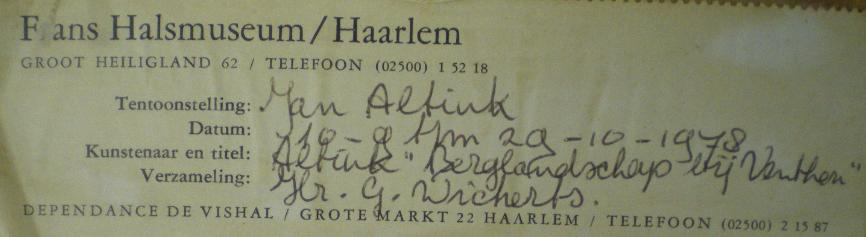 Frans Halsmuseum / Haarlem
GROOT HEILIGLAND 62 / TELEFOON (02500) 1 52 18
Tentoonstelling: Jan Altink
Datum: 10-9 t/m 29-10-1978
Kunstenaar en titel: Altink "Berglandschap bij Venthen"
Verzameling: Hr. G. Wicherts.
DEPENDANCE DE VISHAL / GROTE MARKT 22 HAARLEM / TELEFOON (02500) 2 15 87